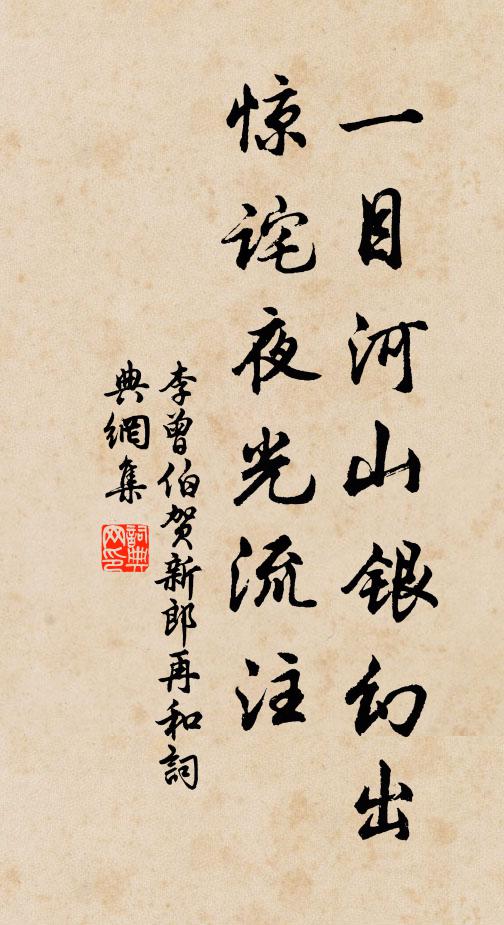 一目河山银幻出
惊诧夜光流注
李曾伯贺新郎再和詞
典網集
詞典网印